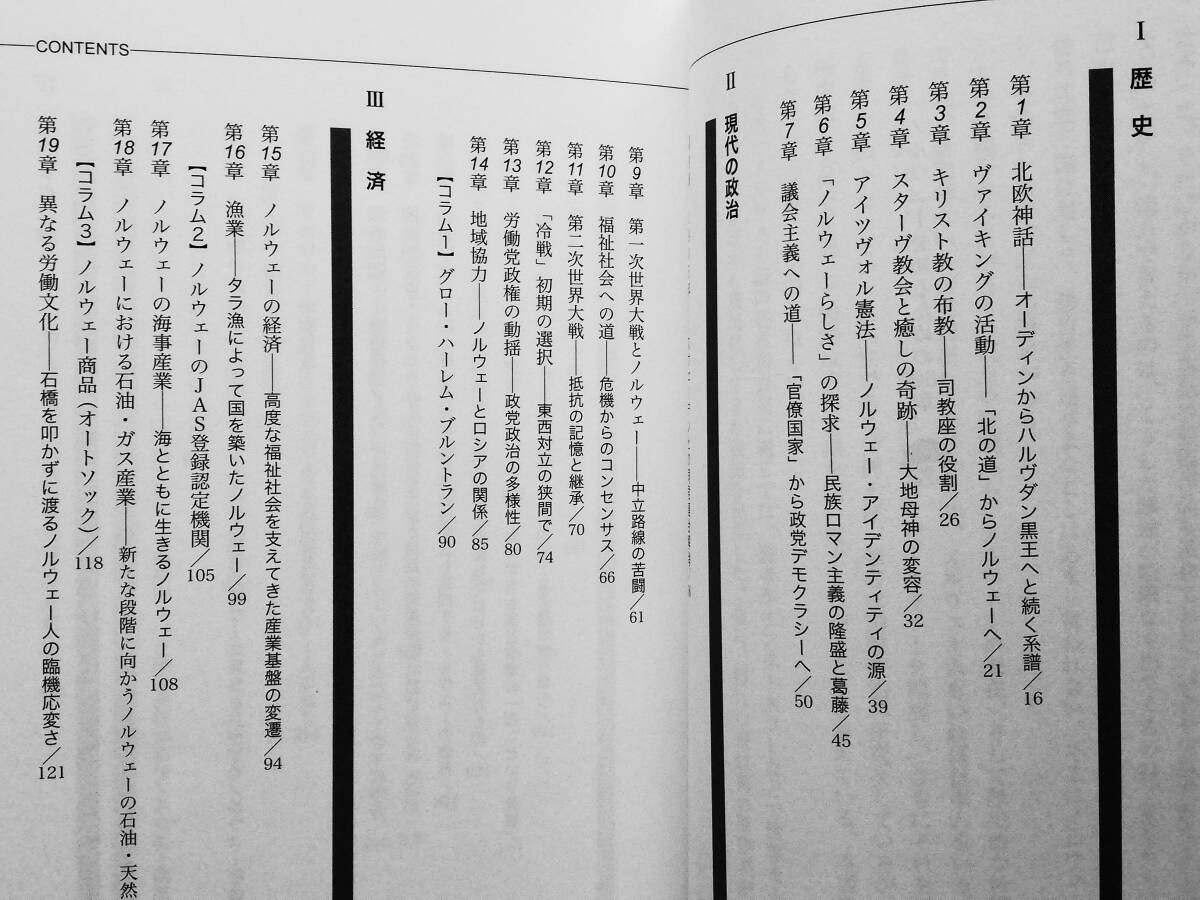 I 歴史
第1章 北欧神話――オーディンからハルヴダン黒王へと続く系譜／16
第2章 ヴァイキングの活動――「北の道」からノルウェーへ／21
第3章 キリスト教の布教――司教座の役割／26
第4章 スターヴ教会と癒しの奇跡――大地母神の変容／32
第5章 アイツヴォル憲法――ノルウェー・アイデンティティの源／39
第6章 「ノルウェーらしさ」の探求――民族ロマン主義の隆盛と葛藤／45
第7章 議会主義への道――「官僚国家」から政党デモクラシーへ／50
II 現代の政治
CONTENTS
第9章 第一次世界大戦とノルウェー――中立路線の苦闘／61
第10章 福祉社会への道――危機からのコンセンサス／66
第11章 第二次世界大戦――抵抗の記憶と継承／70
第12章 「冷戦」初期の選択――東西対立の狭間で／74
第13章 労働党政権の動揺――政党政治の多様性／80
第14章 地域協力――ノルウェーとロシアの関係／85
【コラム1】グロー・ハーレム・ブルントラン／90
III 経済
第15章 ノルウェーの経済――高度な福祉社会を支えてきた産業基盤の変遷／94
第16章 漁業――タラ漁によって国を築いたノルウェー／99
【コラム2】ノルウェーのJAS登録認定機関／105
第17章 ノルウェーの海事産業――海とともに生きるノルウェー／108
第18章 ノルウェーにおける石油・ガス産業――新たな段階に向かうノルウェーの石油・天然
【コラム3】ノルウェー商品（オートソック）／118
第19章 異なる労働文化――石橋を叩かずに渡るノルウェー人の臨機応変さ／121